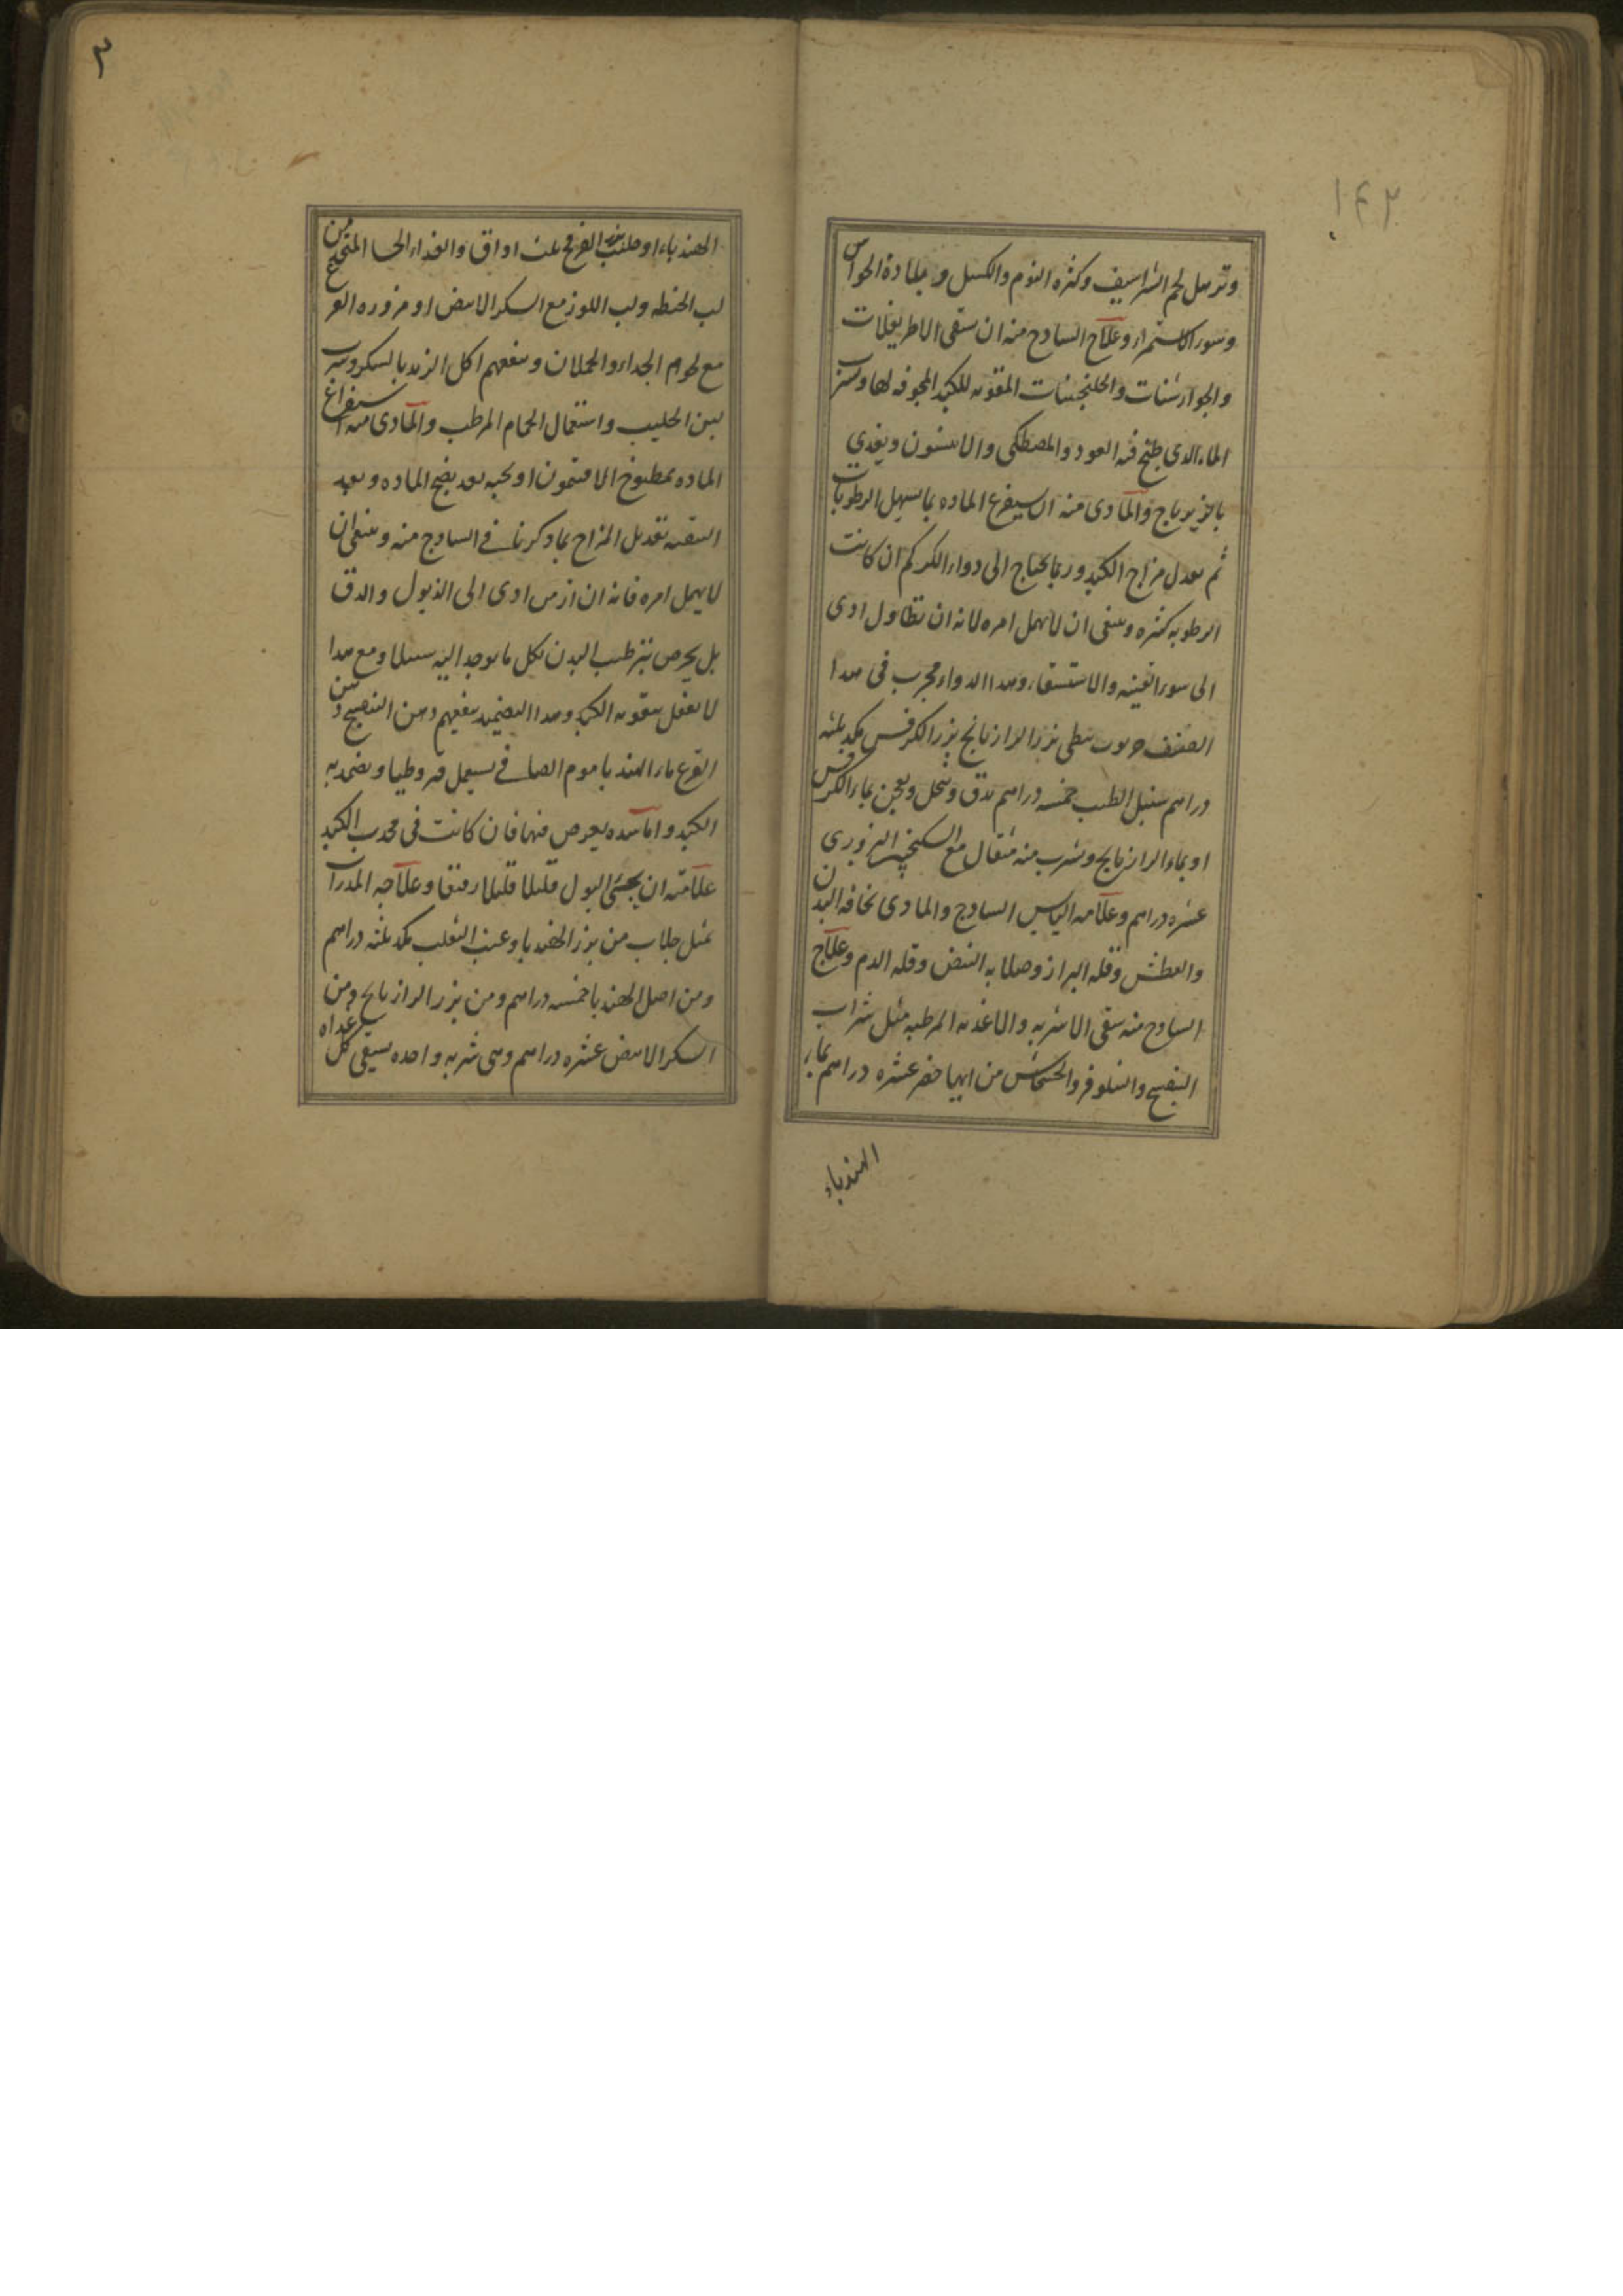 ١٤٢
وترهل لحم الشراسيف وكثره النوم والكسل وبلادة الحواس
وسوء الاستمراء وعلاج الساذج منه ان يسقى الاطريفلات
والجوارشنات والجلنجبينات المقويه للكبد المجففه لها وشرب
الماء الذي طبخ فيه العود والمصطكى والانيسون ويغذى
بالزيرباج والمادى منه ان يستفرغ الماده بما يسهل الرطوبات
ثم يعدل مزاج الكبد وربما يحتاج الى دواء الكركم ان كانت
الرطوبه كثيره وينبغى ان لا يهمل امره لانه ان تطاول ادى
الى سوء القنيه والاستسقاء وهذا الدواء مجرب فى هذا
الصنف نبطى بزر الرازيانج بزر الكرفس مكد ثلثه
دراهم سنبل الطيب خمسه دراهم يدق وينخل ويعجن بماء الكرفس
او بماء الرازيانج ويشرب منه مثقال مع السكنجبين البزورى
عشره دراهم وعلامه اليابس الساذج والمادى نحافه البدن
والعطش وقله البراز وصلابه النبض وقله الدم وعلاج
الساذج منه سقى الاشربه والاغذيه المرطبه مثل شراب
البنفسج والنيلوفر والخشخاش من ايها حضر عشره دراهم بماء
الهندباء
٣
الهندباء او حليب بزر القرع ثلث اواق والغذاء الحسا المتخذ من
لب الحنطه ولب اللوز مع السكر الابيض او مزوره القرع
مع لحوم الجداء والحملان وينفعهم اكل الزبد بالسكر وشرب
لبن الحليب واستعمال الحمام المرطب والمادى منه استفراغ
الماده بمطبوخ الافتيمون او بحبه بعد نضج الماده وبعد
التنقيه تعديل المزاج بما ذكرنا فى الساذج منه وينبغى ان
لا يهمل امره فانه ان ازمن ادى الى الذبول والدق
بل يحرص بترطيب البدن بكل ما يوجد اليه سبيلا ومع هذا
لا يغفل بتقويه الكبد وهذا التضميد ينفعهم دهن البنفسج دهن
القرع ماء الهندبا موم الصافى يستعمل قيروطيا ويضمد به
الكبد واما سده يعرض فيها فان كانت فى محدب الكبد
علامته ان يجئ البول قليلا قليلا رقيقا وعلاجه المدرات
بمثل جلاب من بزر الهندبا وعنب الثعلب مكد ثلثه دراهم
ومن اصل الهندبا خمسه دراهم ومن بزر الرازيانج ومن
السكر الابيض عشره دراهم وهى شربه واحده يسقى كل غداه